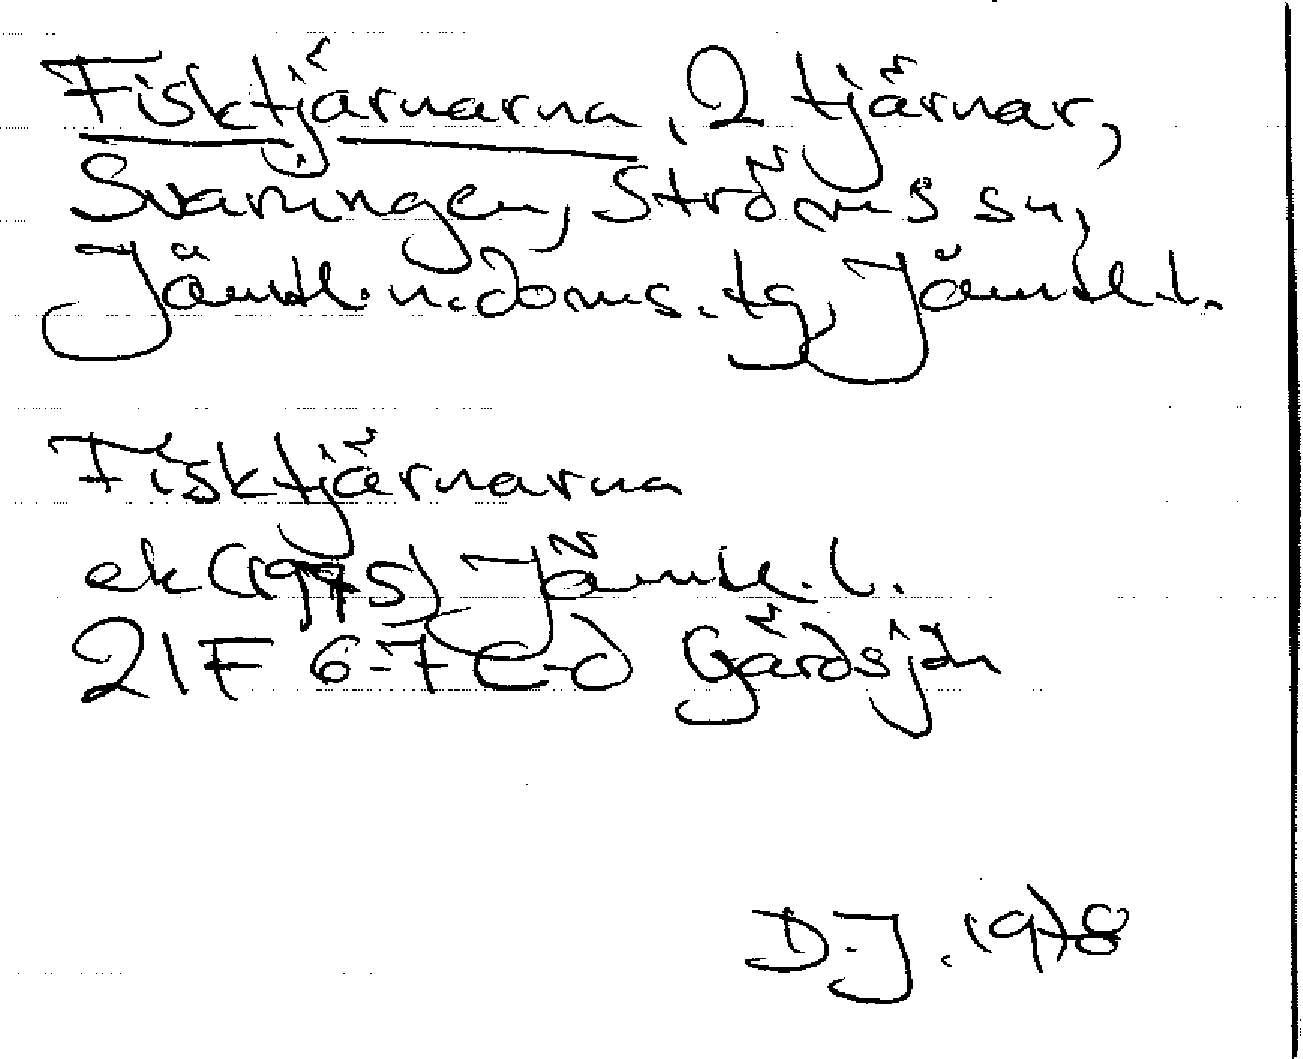 Fisktjärnarna, 2 tjärnar,
Svaningen, Ströms sn,
Jämtl. n. doms. tg, Jämtl. l.
Fisktjärnarna
ek (1975) Jämtl. l.
21F 6-7 c-d Gärdsjön
D.J. 1978